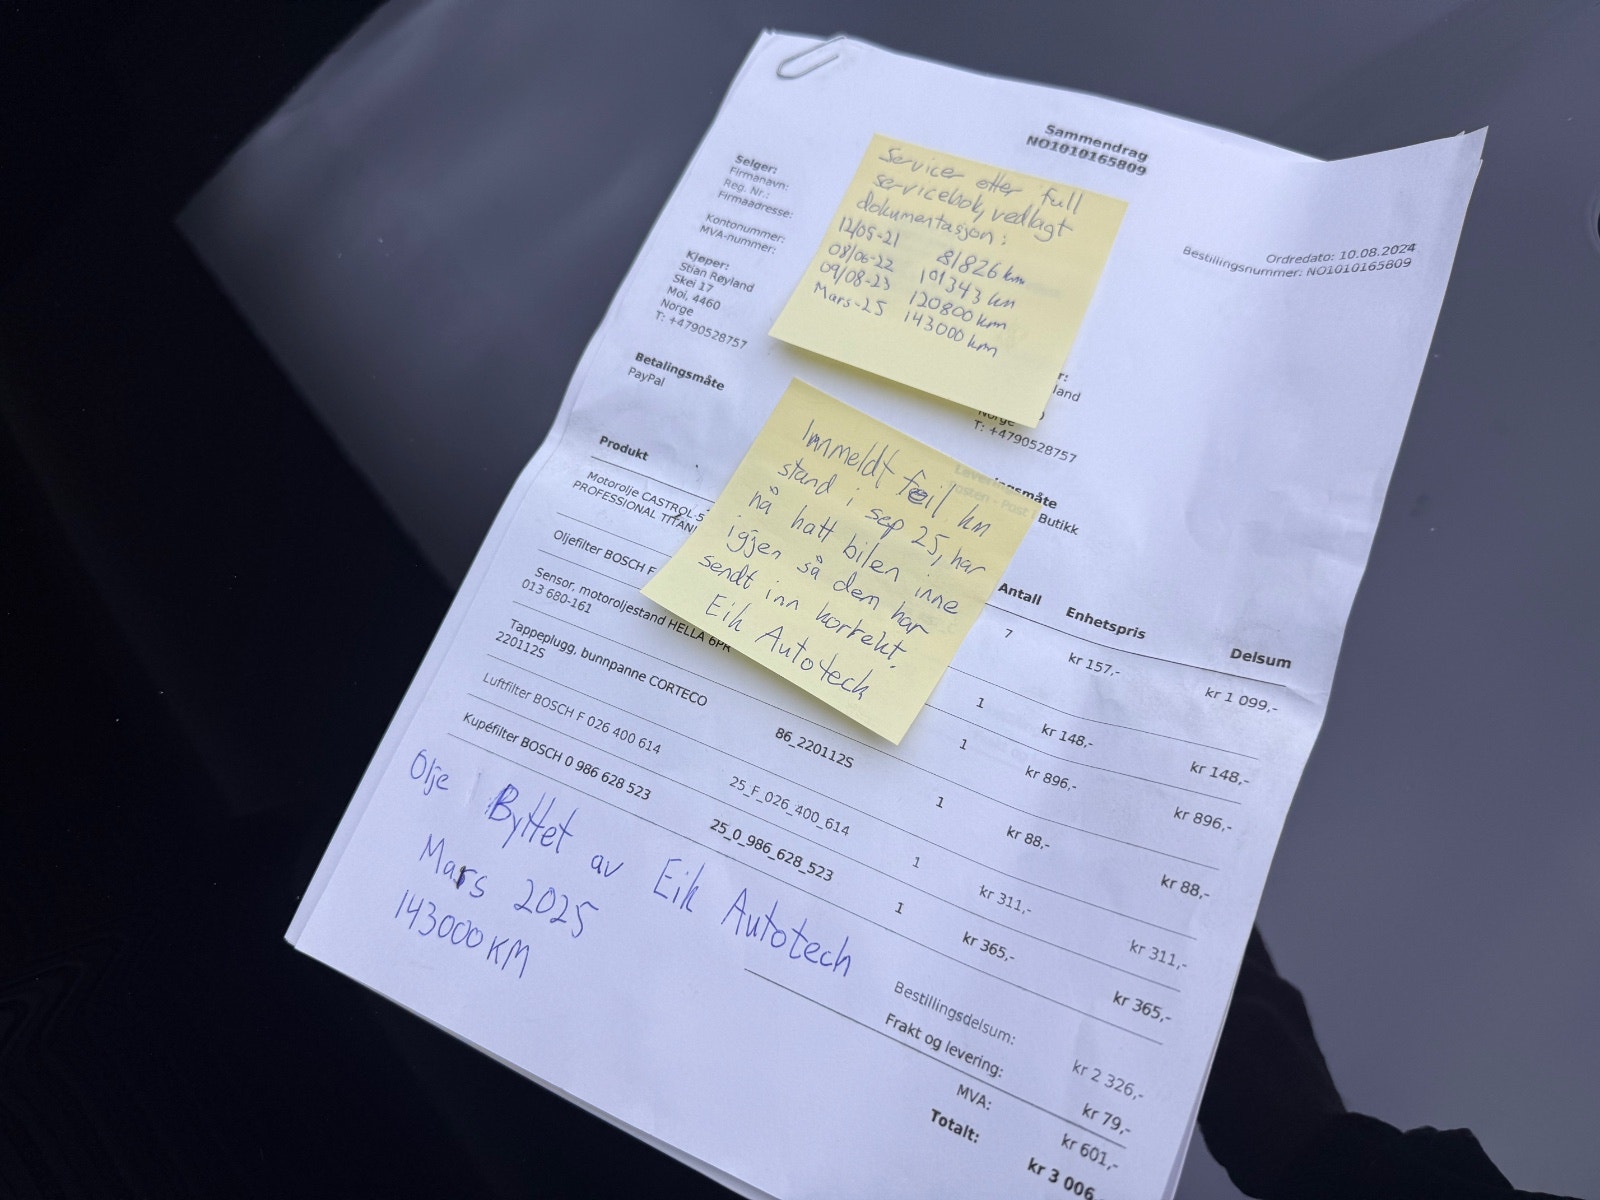 Sammendrag
NO1010165809
Selger:
Firmanavn:
Reg. Nr.:
Firmaadresse:
Kontonummer:
MVA-nummer:
Ordredato: 10.08.2024
Bestillingsnummer: NO1010165809
Servicer etter full
servicebok, vedlagt
dokumentasjon:
12/05-21 81826 km
08/06-22 101343 km
09/08-23 120800 km
Mars-25 143000 km
Kjøper:
Stian Røyland
Skei 17
Moi, 4460
Norge
T: +4790528757
r:
land
Norge
T: +4790528757
Betalingsmåte
PayPal
Leveringsmåte
Posten - Post i Butikk
Innmeldt feil km
stand i sep 25, har
nå hatt bilen inne
igjen så dem har
sendt inn korrekt.
Eik Autotech
Produkt Antall Enhetspris Delsum
Motorolje CASTROL 5
PROFESSIONAL TITAN
7 kr 157,- kr 1 099,-
Oljefilter BOSCH F 1 kr 148,- kr 148,-
Sensor, motoroljestand HELLA 6PR
013 680-161
1 kr 896,- kr 896,-
Tappeplugg, bunnpanne CORTECO
220112S
86_220112S 1 kr 88,- kr 88,-
Luftfilter BOSCH F 026 400 614 25_F_026_400_614 1 kr 311,- kr 311,-
Kupéfilter BOSCH 0 986 628 523 25_0_986_628_523 1 kr 365,- kr 365,-
Olje Byttet av Eik Autotech
Mars 2025
143000 KM
Bestillingsdelsum: kr 2 326,-
Frakt og levering: kr 79,-
MVA: kr 601,-
Totalt: kr 3 006,-